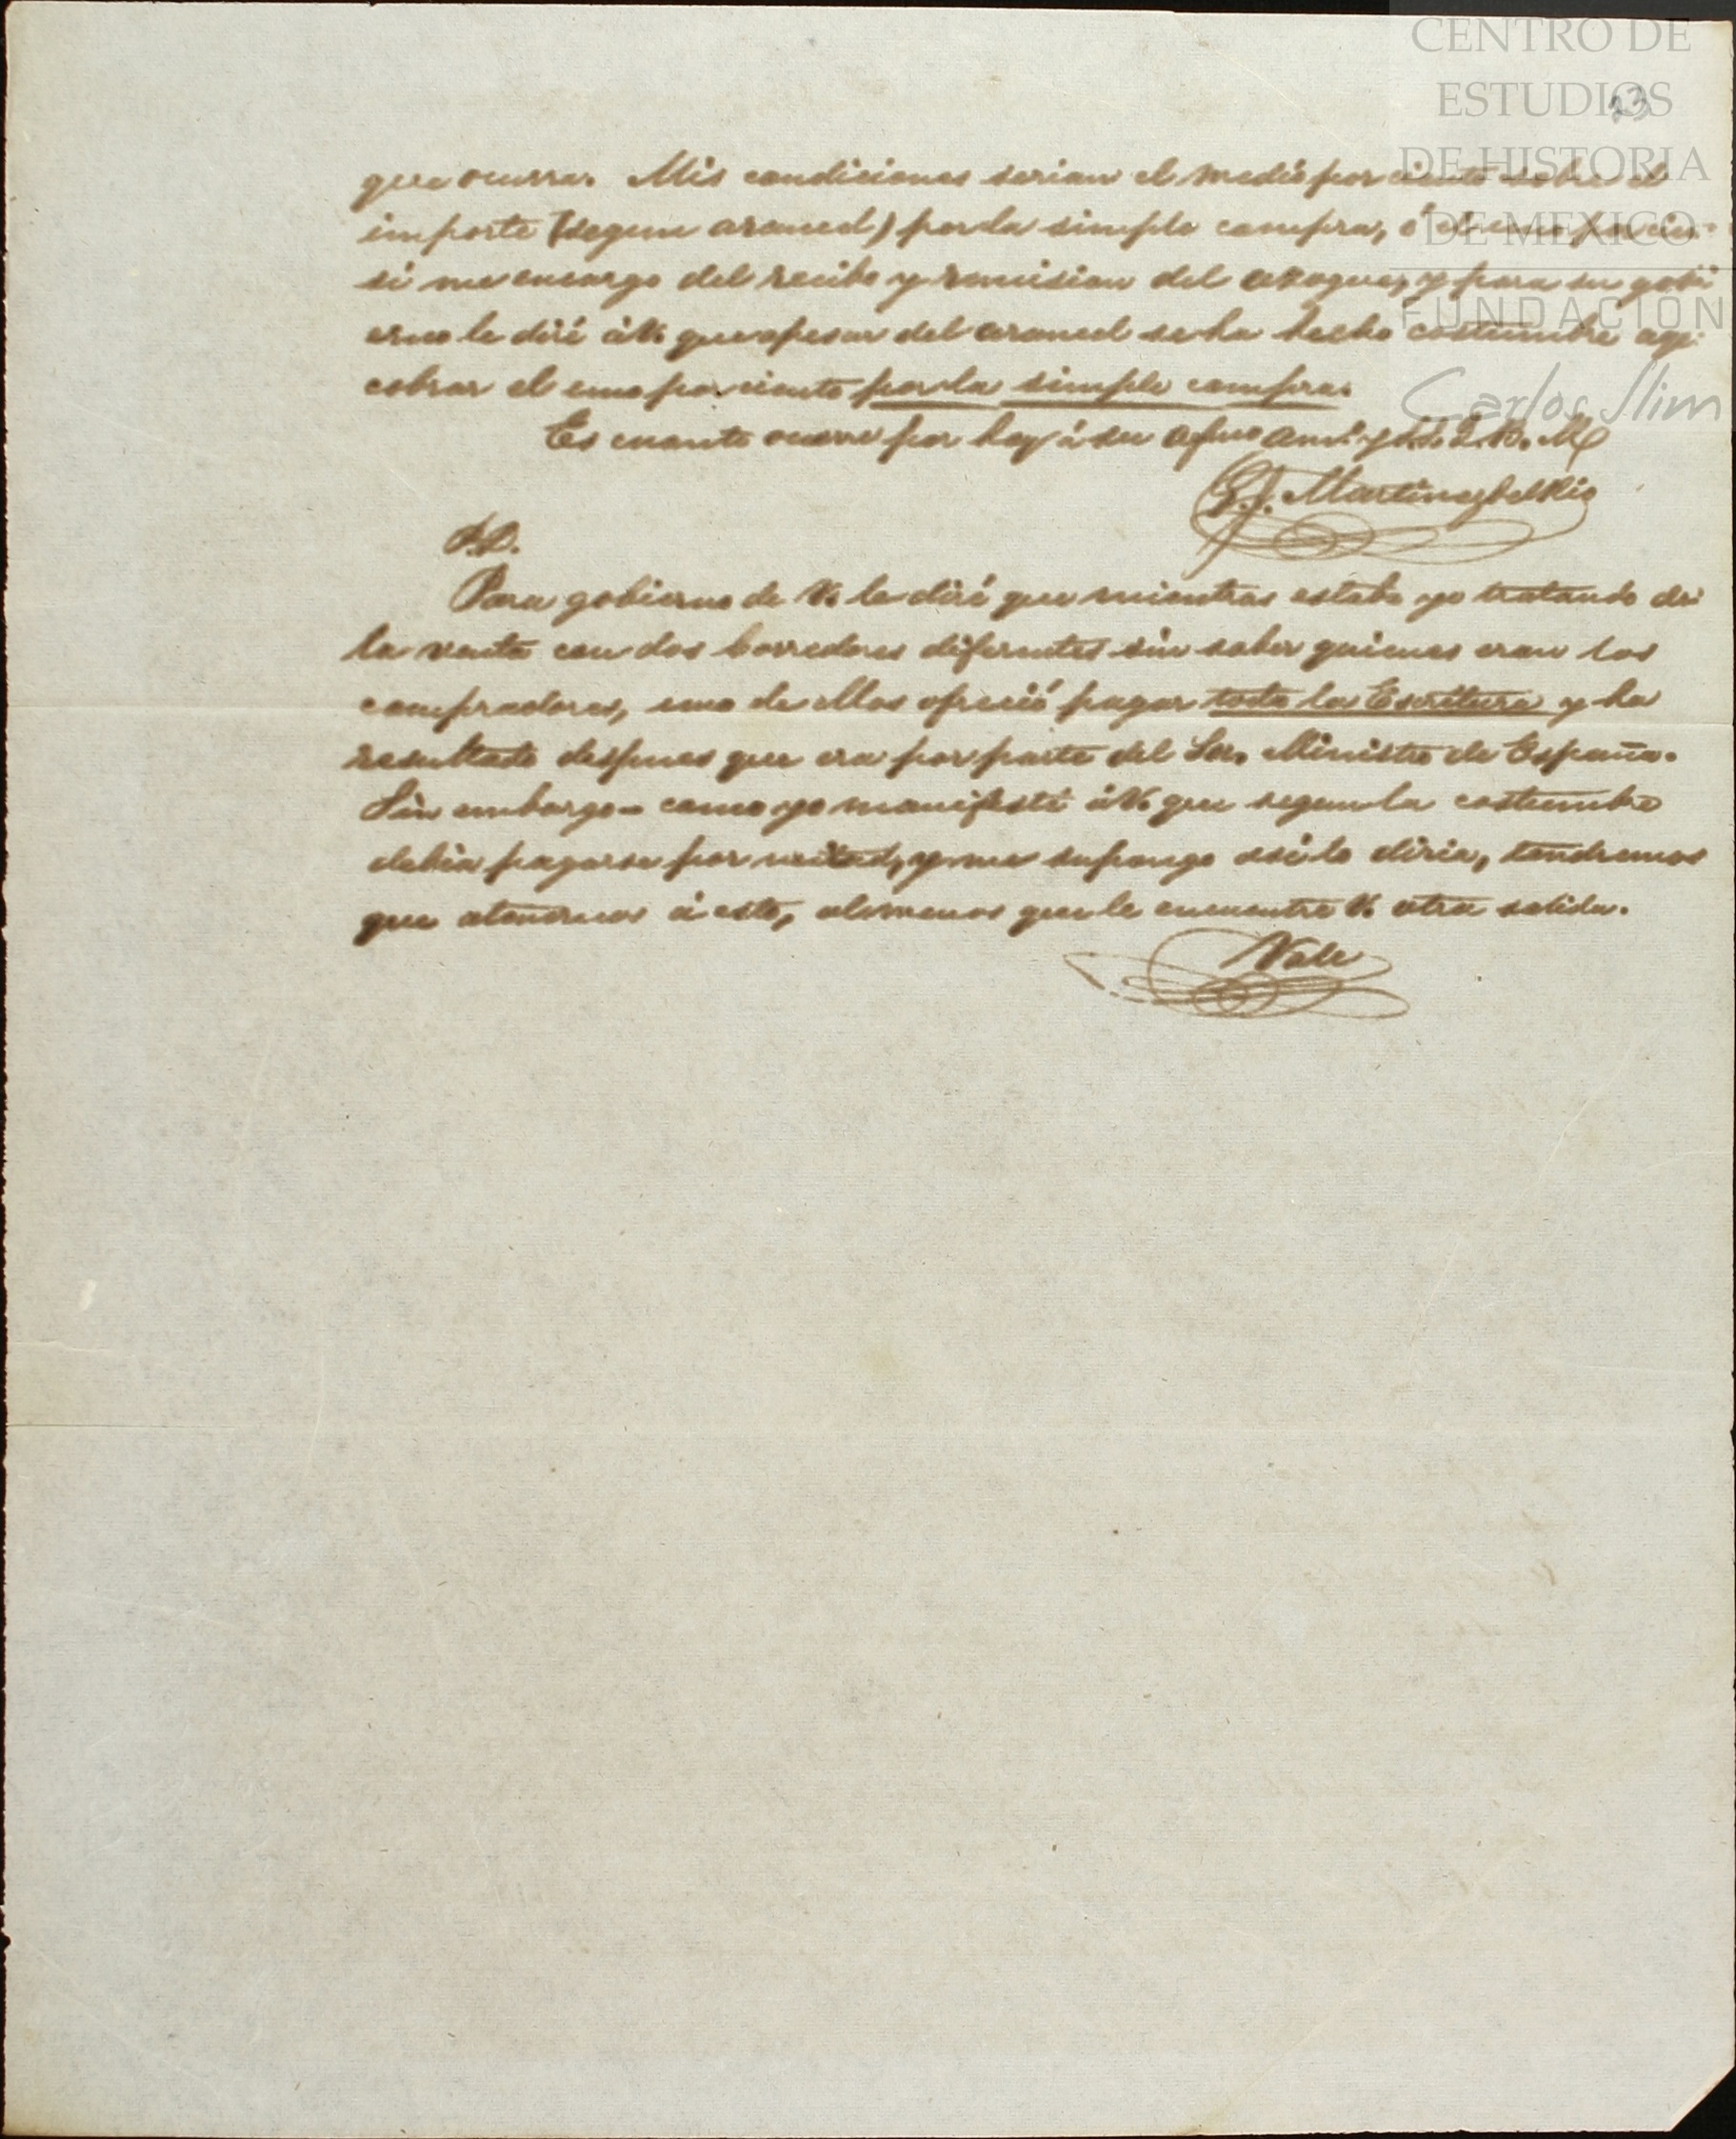 CENTRO DE
ESTUDIOS
DE HISTORIA
DE MEXICO
FUNDACION
Carlos Slim
23
que ocurra. Mis condiciones serian el medio por ciento sobre el
importe (segun arancel) por la simple compra, ó el uno por cien-
si me encargo del recibo y remision del azogue, y para su gobi
erno le diré á V. que apesar del arancel se ha hecho costumbre aqi
cobrar el uno por ciento por la simple compra.
Es cuanto ocurre por hoy á su afmo am.º y S.S. Q.B.M
Martinez del Rio
P.D.
Para gobierno de V. le diré que mientras estaba yo tratando de
la venta con dos corredores diferentes sin saber quienes eran los
compradores, uno de ellos ofreció pagar toda la Escritura y ha
resultado despues que era por parte del Sor. Ministro de España.
Sin embargo - como yo manifesté á V. que segun la costumbre
debia pagarse por mitad, y me supongo asi lo diria, tendremos
que atenernos á esto, alomenos que le encuentre V. otra salida.
Vale